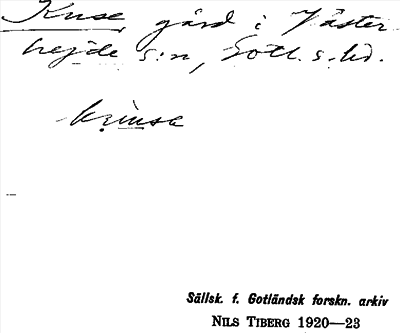 Kuse gård i Väster
hejde s:n, Gotl. s. hd.
Sällsk. f. Gotländsk forskn. arkiv
NILS TIBERG 1920—23